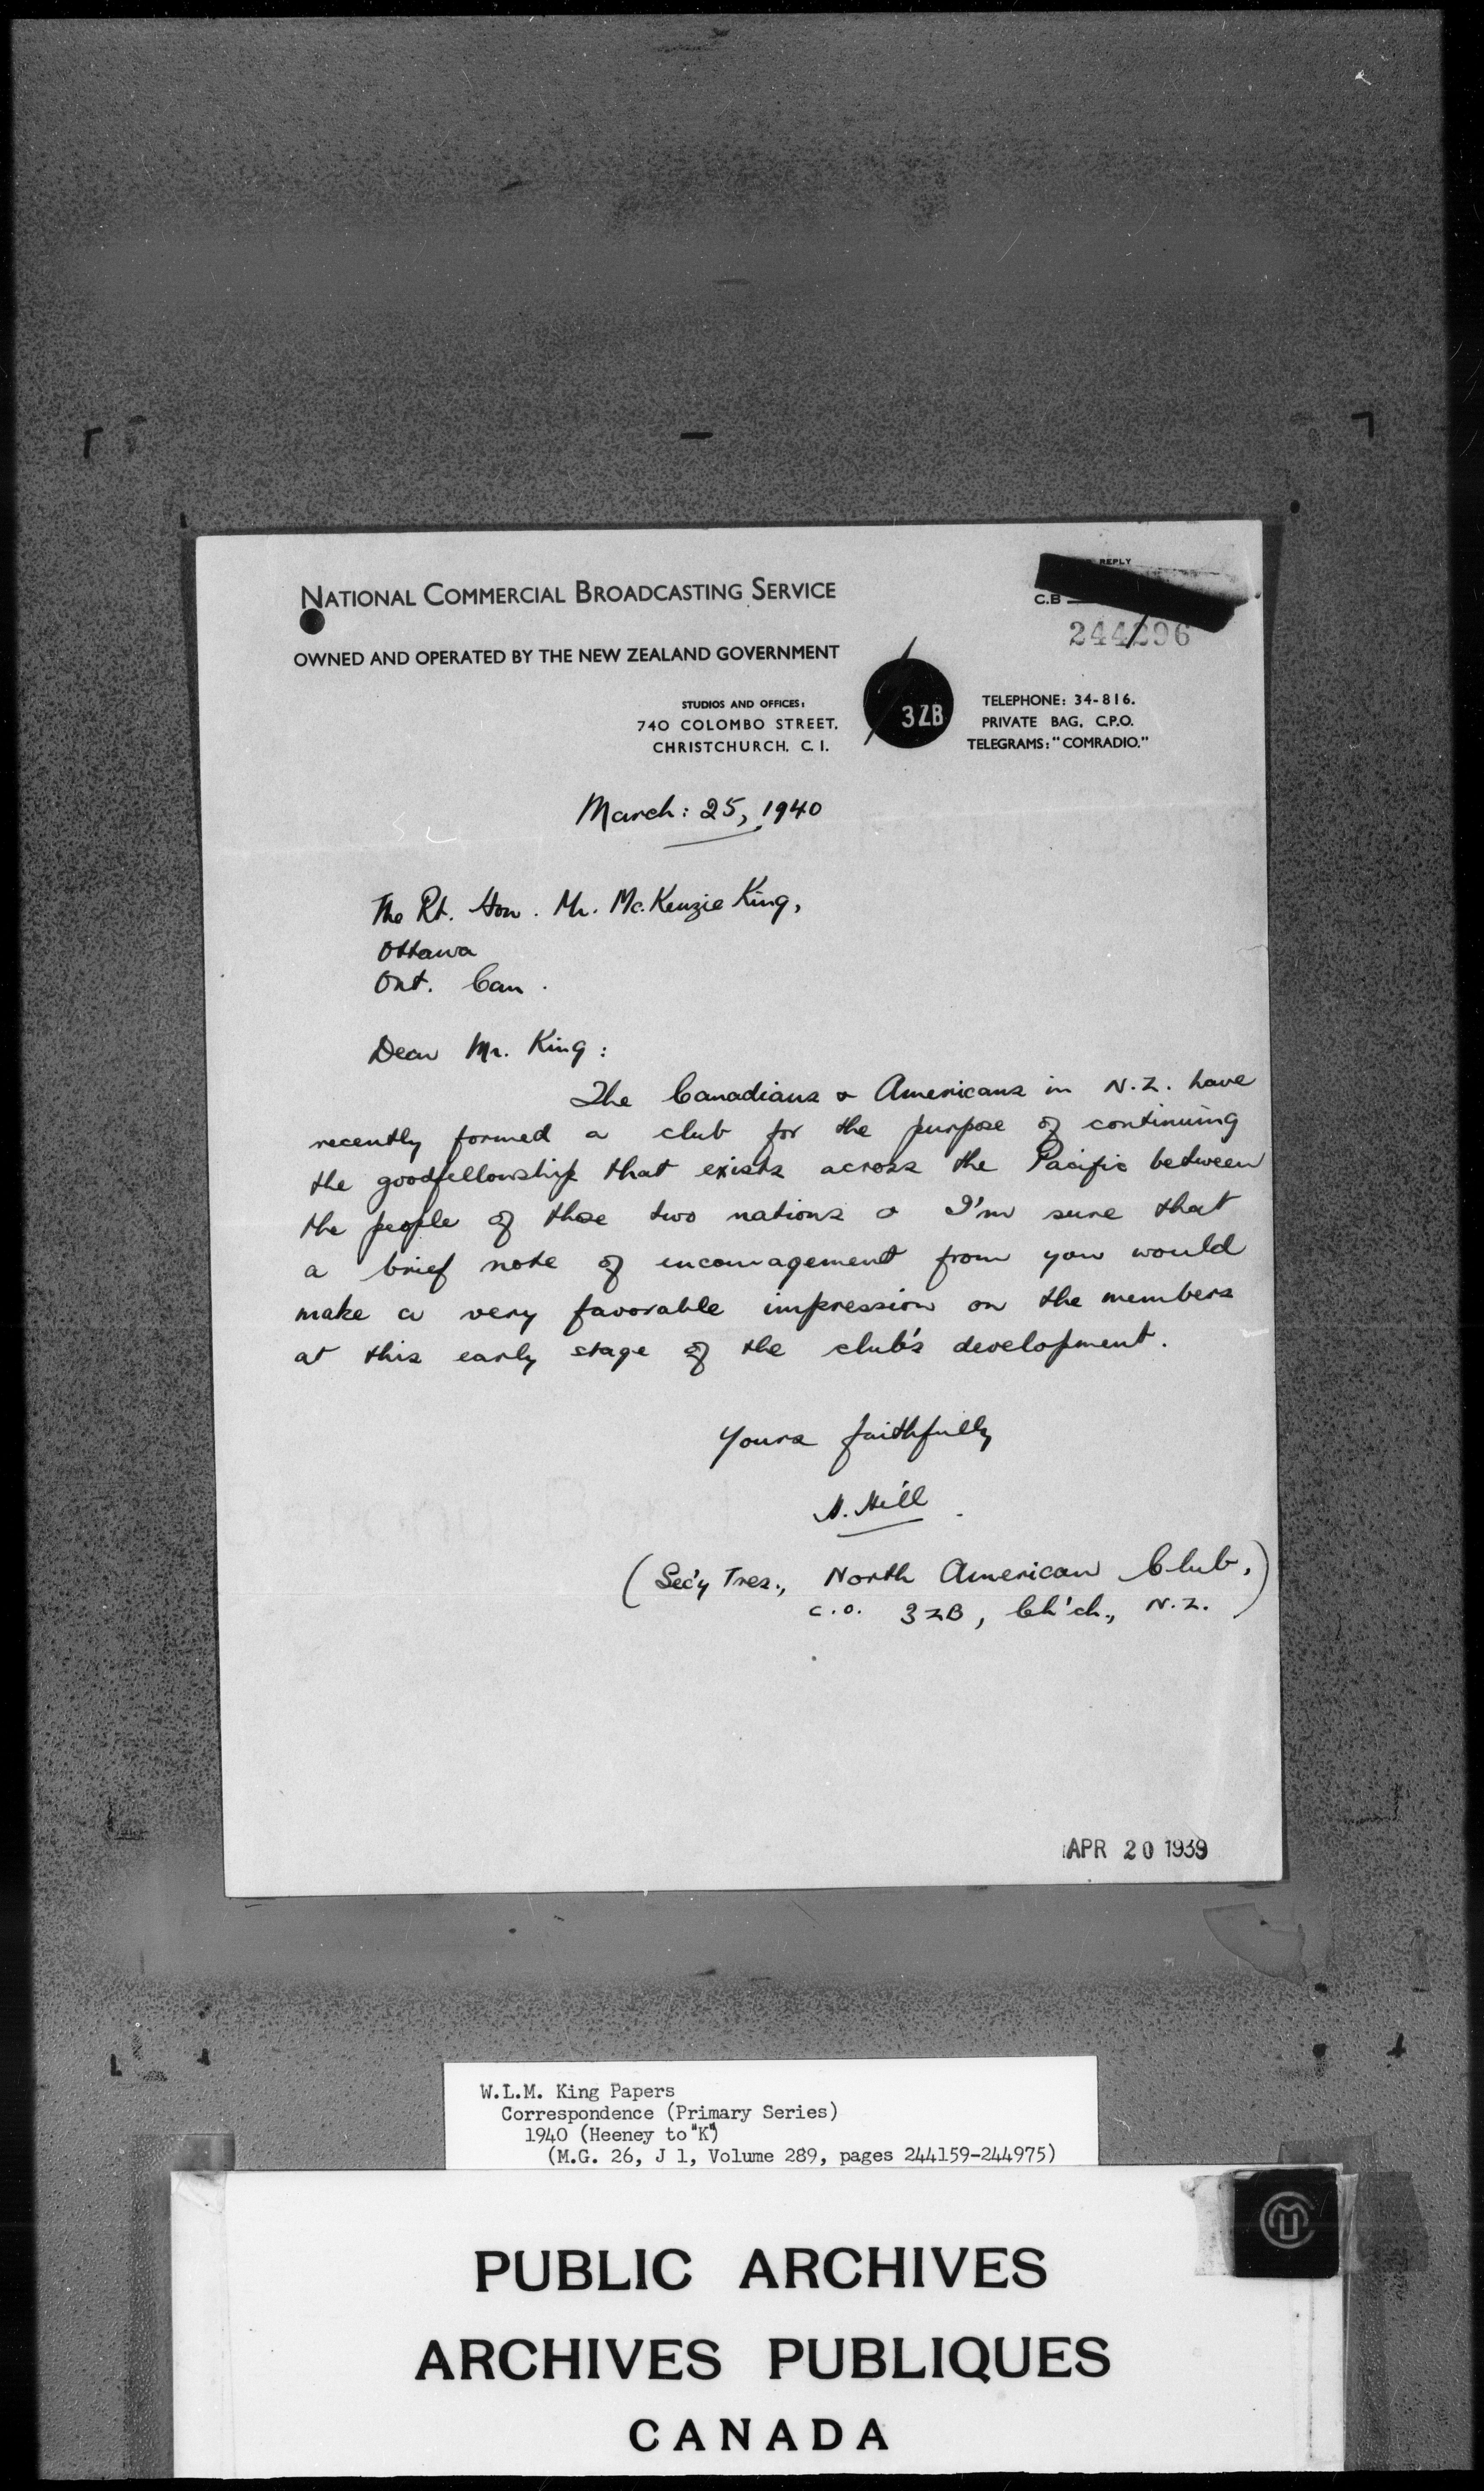 NATIONAL COMMERCIAL BROADCASTING SERVICE
REPLY
C.B
244296
OWNED AND OPERATED BY THE NEW ZEALAND GOVERNMENT
STUDIOS AND OFFICES:
740 COLOMBO STREET,
CHRISTCHURCH. C. I.
3ZB
TELEPHONE: 34-816.
PRIVATE BAG, C.P.O.
TELEGRAMS: "COMRADIO."
March: 25, 1940
The Rt. Hon. Mr. McKenzie King,
Ottawa
Ont. Can.
Dear Mr. King:
The Canadians & Americans in N.Z. have
recently formed a club for the purpose of continuing
the goodfellowship that exists across the Pacific between
the people of those two nations & I'm sure that
a brief note of encouragement from you would
make a very favorable impression on the members
at this early stage of the club's development.
Yours faithfully
Hill
(Sec'y Tres., North American Club,
c.o. 3ZB, Ch'ch., N.Z.)
APR 20 1939
W.L.M. King Papers
Correspondence (Primary Series)
1940 (Heeney to "K")
(M.G. 26, J 1, Volume 289, pages 244159-244975)
PUBLIC ARCHIVES
ARCHIVES PUBLIQUES
CANADA